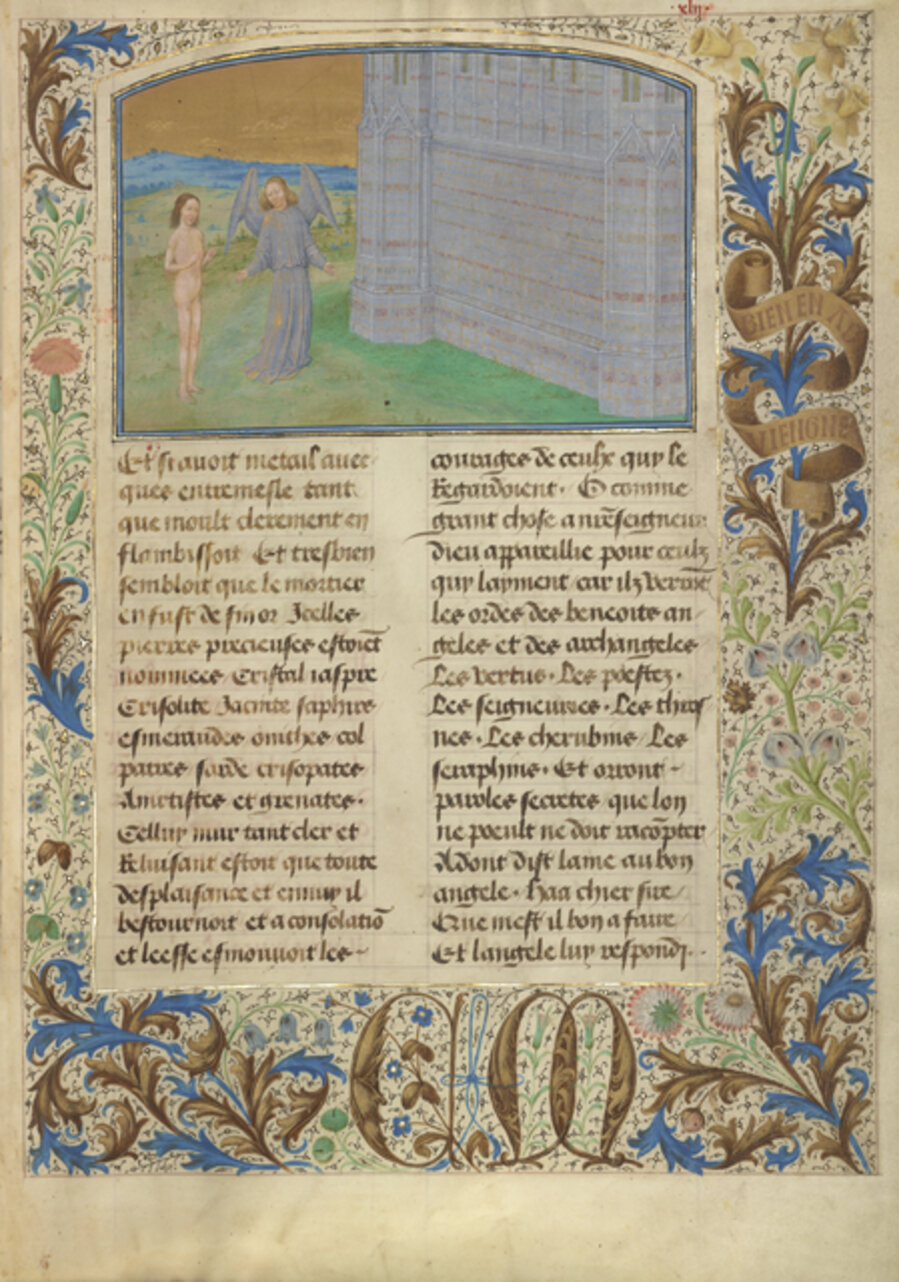 xliij
Et si auoit metail auec
ques entremesle tant
que moult clerement en
flambissoit Et tresbien
sembloit que le mortier
en fust de fin or Icelles
pierres precieuses estoiēt
nommees Cristal iaspre
Crisolite Iacinte saphire
esmeraudes onichee col
patres sarde crisopatee
Ametistes et grenates·
Celluy mur tant cler et
Reluisant estoit que toute
desplaisance et ennuy il
bestournoit et a consolatiō
et leesse esmouuoit les
courages de ceulx quy le
Regardoient· O comme
grant chose a nr̄e seigneur
dieu appareillie pour ceulz
quy layment car ilz verrōt
les ordes des benoits an-
geles et des archangeles
Les vertus· Les poestez·
Les seigneuries· Les thros
nes· Les cherubins Les
seraphins· Et orront
paroles secretes que lon
ne poeult ne doit racōpter
Adont dist lame au bon
angele· Haa chier sire
Que mest il bon a faire
Et langele luy respondi·
BIEN EN A
VIENGNE
CM